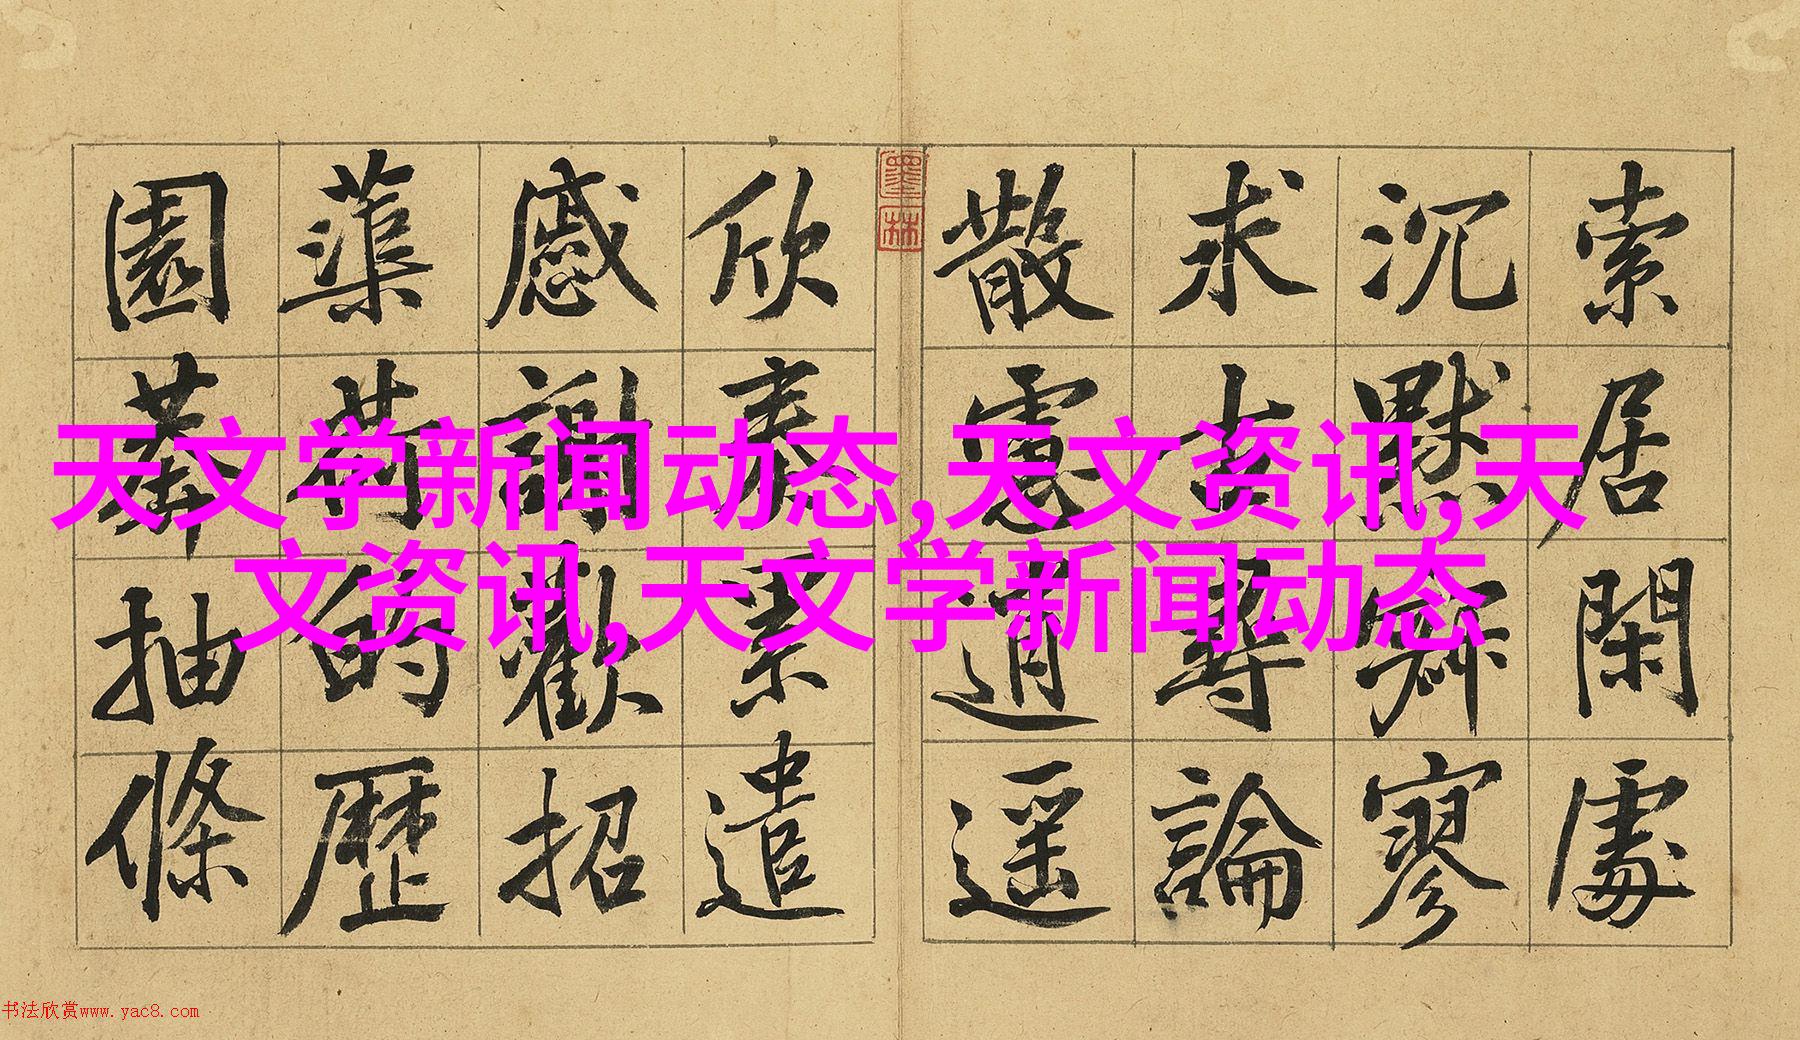 索居閑處
沉默寂寥
求古尋論
散慮逍遥
墨林
欣奏累遣
慼謝歡招
蕖荷的歷
園莽抽條
天文学新闻动态,天文资讯,天
文资讯,天文学新闻动态
书法欣赏www.yac8.com